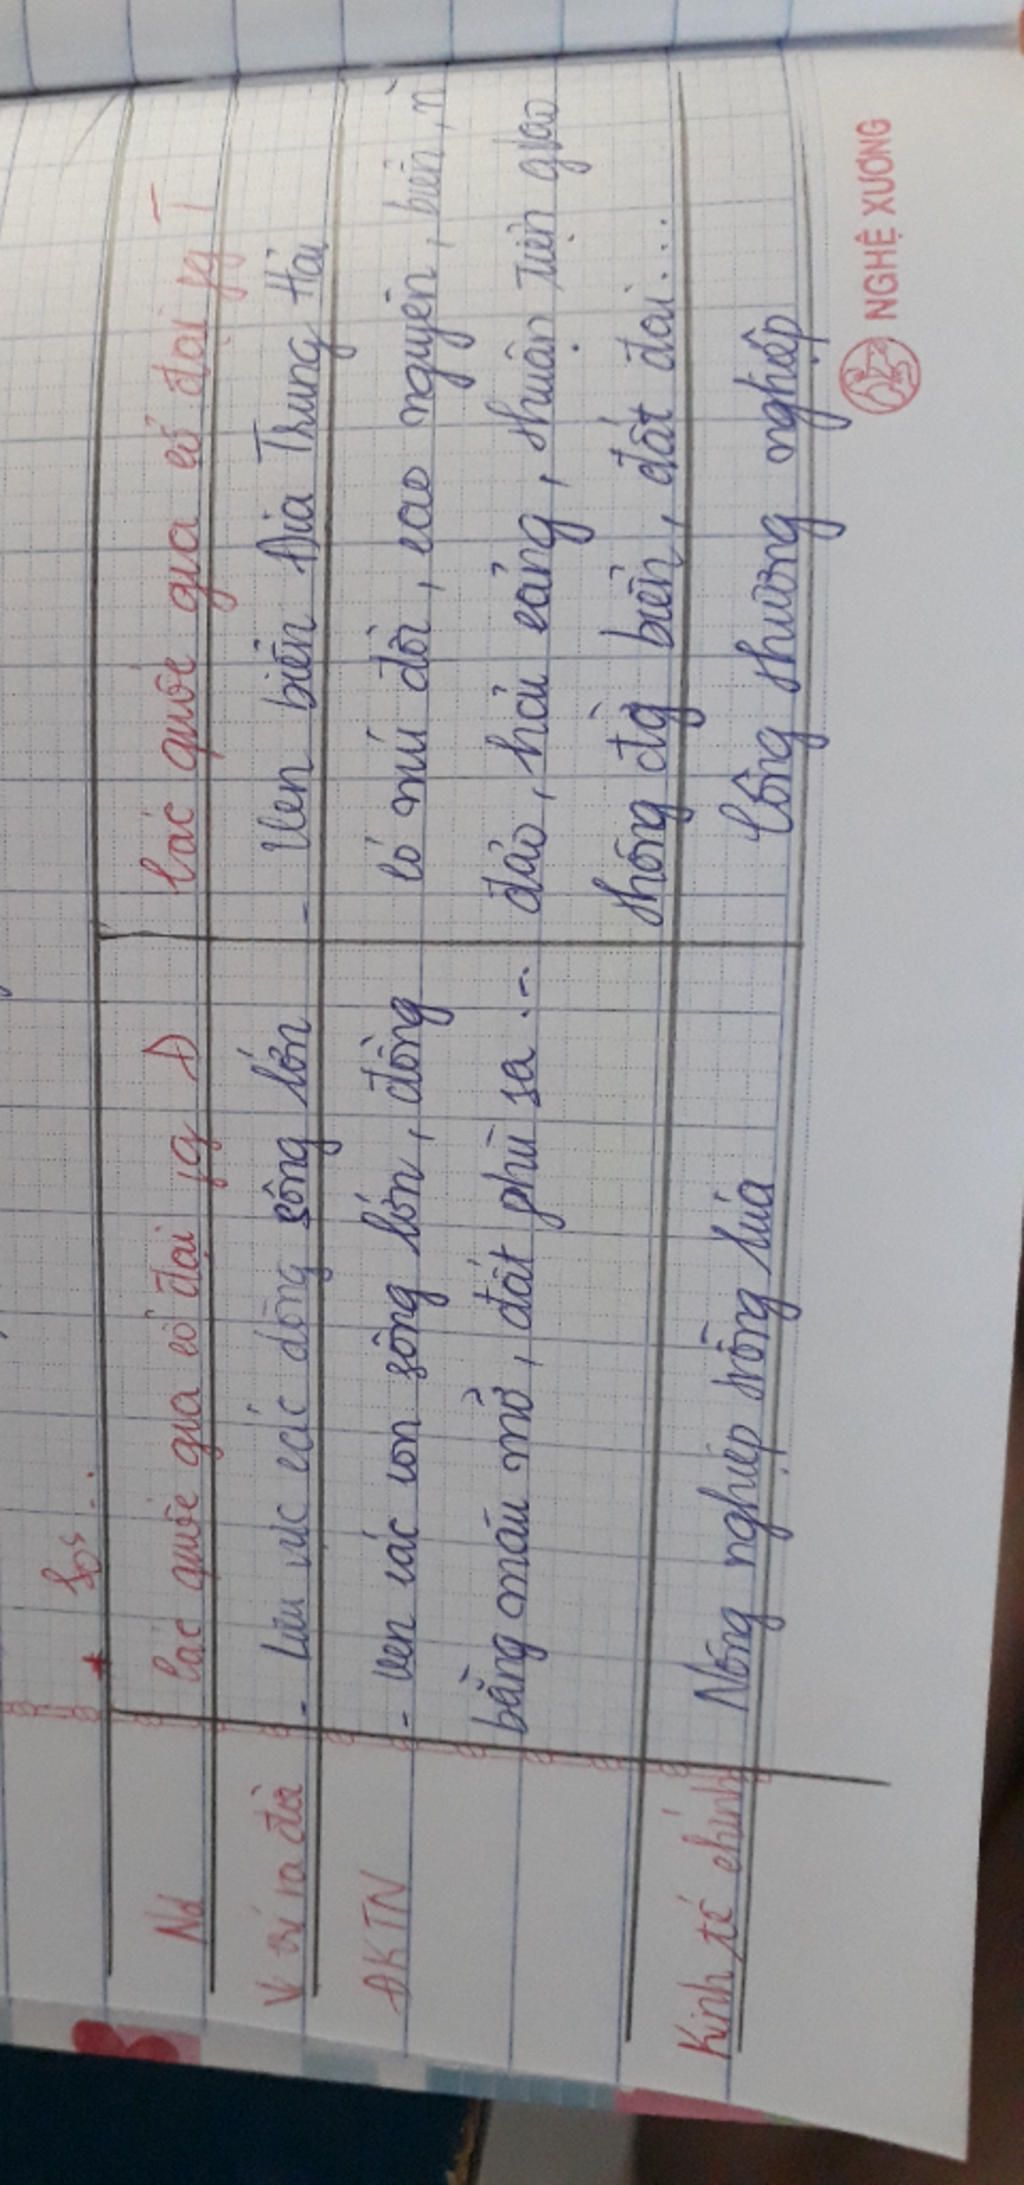 + Sos ...
Nd Các quốc gia cổ đại pg Đ Các quốc gia cổ đại pg T
Vị trí ra đời - Lưu vực các dòng sông lớn - Ven biển Địa Trung Hải
ĐKTN - Ven các con sông lớn, đồng Có núi đồi, cao nguyên, biển, n
bằng màu mỡ, đất phù sa ... đảo, hải cảng, thuận tiện giao
thông đg biển, đất đai...
Kinh tế chính Nông nghiệp trồng lúa Công thương nghiệp
NGHỆ XUONG